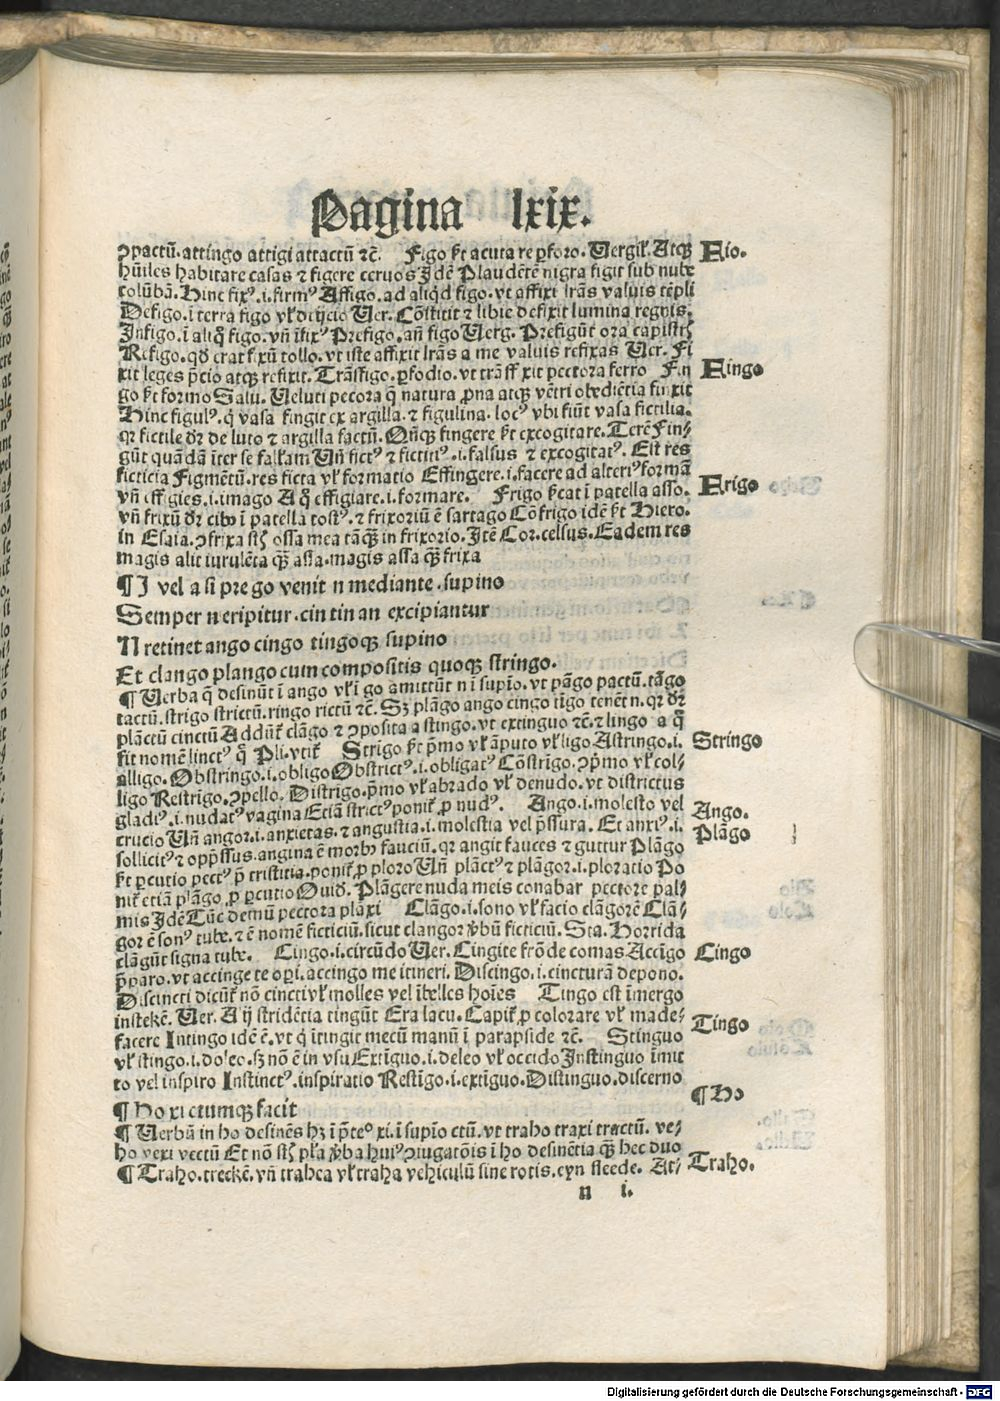 Pagina lxix.
ꝯpactū. attingo attigi attactū ⁊c̄. Figo ſꝫt acuta re ꝑforo. Vergil. Atqꝫ Fio.
hūiles habitare caſas ⁊ figere ceruos Jdē Plaudētē nigra figit ſub nube
colūbā. Hinc fixꝰ. i. firmꝰ Affigo. ad aliqd figo. vt affixi lr̄as valuis tēpli
Defigo. ī terra figo vl̓ deijcio Ver. Cōſtitit ⁊ libie defixit lumina regnis.
Jnfigo. ī aliq̊ figo. vn̄ īfixꝰ Prefigo. an̄ figo Verg. Prefigūt ora capiſtris
Refigo. qd̓ erat fixū tollo. vt iſte affixit lr̄as a me valuis refixas Ver. Fi
xit leges p̄cio atqꝫ refixit. Trāſfigo. ꝑfodio. vt trāſfixit pectora ferro Fin Fingo
go ſꝫt formo Salu. Veluti pecora q̄ natura ꝓna atqꝫ vētri obediētia finxit
Hinc figulꝰ. q̇ vaſa fingit ex argilla. ⁊ figulina. locꝰ vbi fiūt vaſa fictilia.
qꝛ fictile dꝛ̄ de luto ⁊ argilla factū. Qn̄qꝫ fingere ſꝫt excogitare. Terē Fin⸗
gūt quādā īter ſe fallam Vn̄ fictꝰ ⁊ fictitiꝰ. i. falſus ⁊ excogitatꝰ. Eſt res
ficticia Figmētū. res ficta vl̓ formatio Effingere. i. facere ad alteriꝰ formā
vn̄ effigies. i. imago A q̊ effigiare. i. formare. Frigo ſꝫcat ī patella aſſo. Frigo
vn̄ frixū dꝛ̄ cibꝰ ī patella toſtꝰ. ⁊ frixoriū ē ſartago Cōfrigo idē ſꝫt Hiero.
in Eſaia. ꝯfrixa ſt̄ oſſa mea tāqꝫ in frixorio. Jtē Cor. celſus. Eadem res
magis alit iurulēta qꝫ aſſa. magis aſſa qꝫ frixa
¶ J vel a ſi pre go venit n mediante. ſupino
Semper n eripitur. cin tin an excipiantur
N retinet ango cingo tingoqꝫ ſupino
Et clango plango cum compoſitis quoqꝫ ſtringo.
¶ Verba q̄ deſinūt ī ango vl̓ ī go amittūt n ī ſupīo. vt pāgo pactū. tāgo
tactū. ſtrigo ſtrictū. ringo rictū ⁊c̄. Sꝫ plāgo ango cingo tīgo tenēt n. qꝛ dꝛ̄
plāctū cinctū Addūt̉ clāgo ⁊ ꝯpoſita a ſtingo. vt extinguo ⁊c̄. ⁊ lingo a q̊
fit nomē linctꝰ q̄ Pli. vtit̉ Strīgo ſꝫt p̄mo vl̓ āputo vl̓ ligo Aſtringo. i. Stringo
alligo. Obſtringo. i. obligo Obſtrictꝰ. i. obligatꝰ Cōſtrīgo. ꝯp̄mo vl̓ col⸗
ligo Reſtrīgo. ꝯpello. Diſtrīgo. p̄mo vl̓ abrado vl̓ denudo. vt diſtrictus
gladiꝰ. i. nudatꝰ vagina Etiā ſtrictꝰ ponit̉ ꝓ nudꝰ. Ango. i. moleſto vel Ango.
crucio Vn̄ angor. i. anxietas. ⁊ anguſtia. i. moleſtia vel p̄ſſura. Et anxiꝰ. i.
ſollicitꝰ ⁊ opp̄ſſus. angina ē morbꝰ fauciū. qꝛ angit fauces ⁊ guttur Plāgo Plāgo
ſꝫt ꝑcutio pectꝰ p̄ triſtitia. ponit̉ ꝓ ploro Vn̄ plāctꝰ ⁊ plāgor. i. ploratio Po
nit̉ etiā plāgo ꝓ ꝑcutio Ouid̓. Plāgere nuda meis conabar pectore pal⸗
mis Jdē Tūc demū pectora plāxi Clāgo. i. ſono vl̓ facio clāgorē Clā⸗
gor ē ſonꝰ tube. ⁊ ē nomē ficticiū. ſicut clangor ꝟbū ficticiū. Sta. Horrida
clāgūt ſigna tube. Cingo. i. circūdo Ver. Cingite frōde comas Accīgo Cingo
p̄paro. vt accinge te oꝑi. accingo me itineri. Diſcingo. i. cincturā depono.
Diſcincti dicūt̉ nō cincti vl̓ molles vel ībelles hoīes Tingo eſt īmergo
inſtekē. Ver. A ij ſtridētia tingūt Era lacu. Capit̉ ꝓ colorare vl̓ made⸗ Tingo
facere Jntingo idē ē. vt q̇ ītingit mecū manū ī parapſide ⁊c̄. Stinguo
vl̓ ſtingo. i. doleo. ſꝫ nō ē in vſu Extīguo. i. deleo vl̓ occido Jnſtinguo īmit
to vel inſpiro Jnſtinctꝰ. inſpiratio Reſtīgo. i. extīguo. Diſtinguo. diſcerno
¶ Ho xi ctumqꝫ facit ¶ Ho
¶ Verbū in ho deſinēs hꝫ ī p̄te° xi. ī ſupīo ctū. vt traho traxi tractū. ve⸗
ho vexi vectū Et nō ſt̄ pl̓a ꝟba huiꝰ ꝯiugatōis ī ho deſinētia qꝫ hec duo
¶ Traho. treckē. vn̄ trahea vl̓ traha vehiculū ſine rotis. eyn ſleede. At⸗ Traho.
n i.
Digitalisierung gefördert durch die Deutsche Forschungsgemeinschaft - DFG